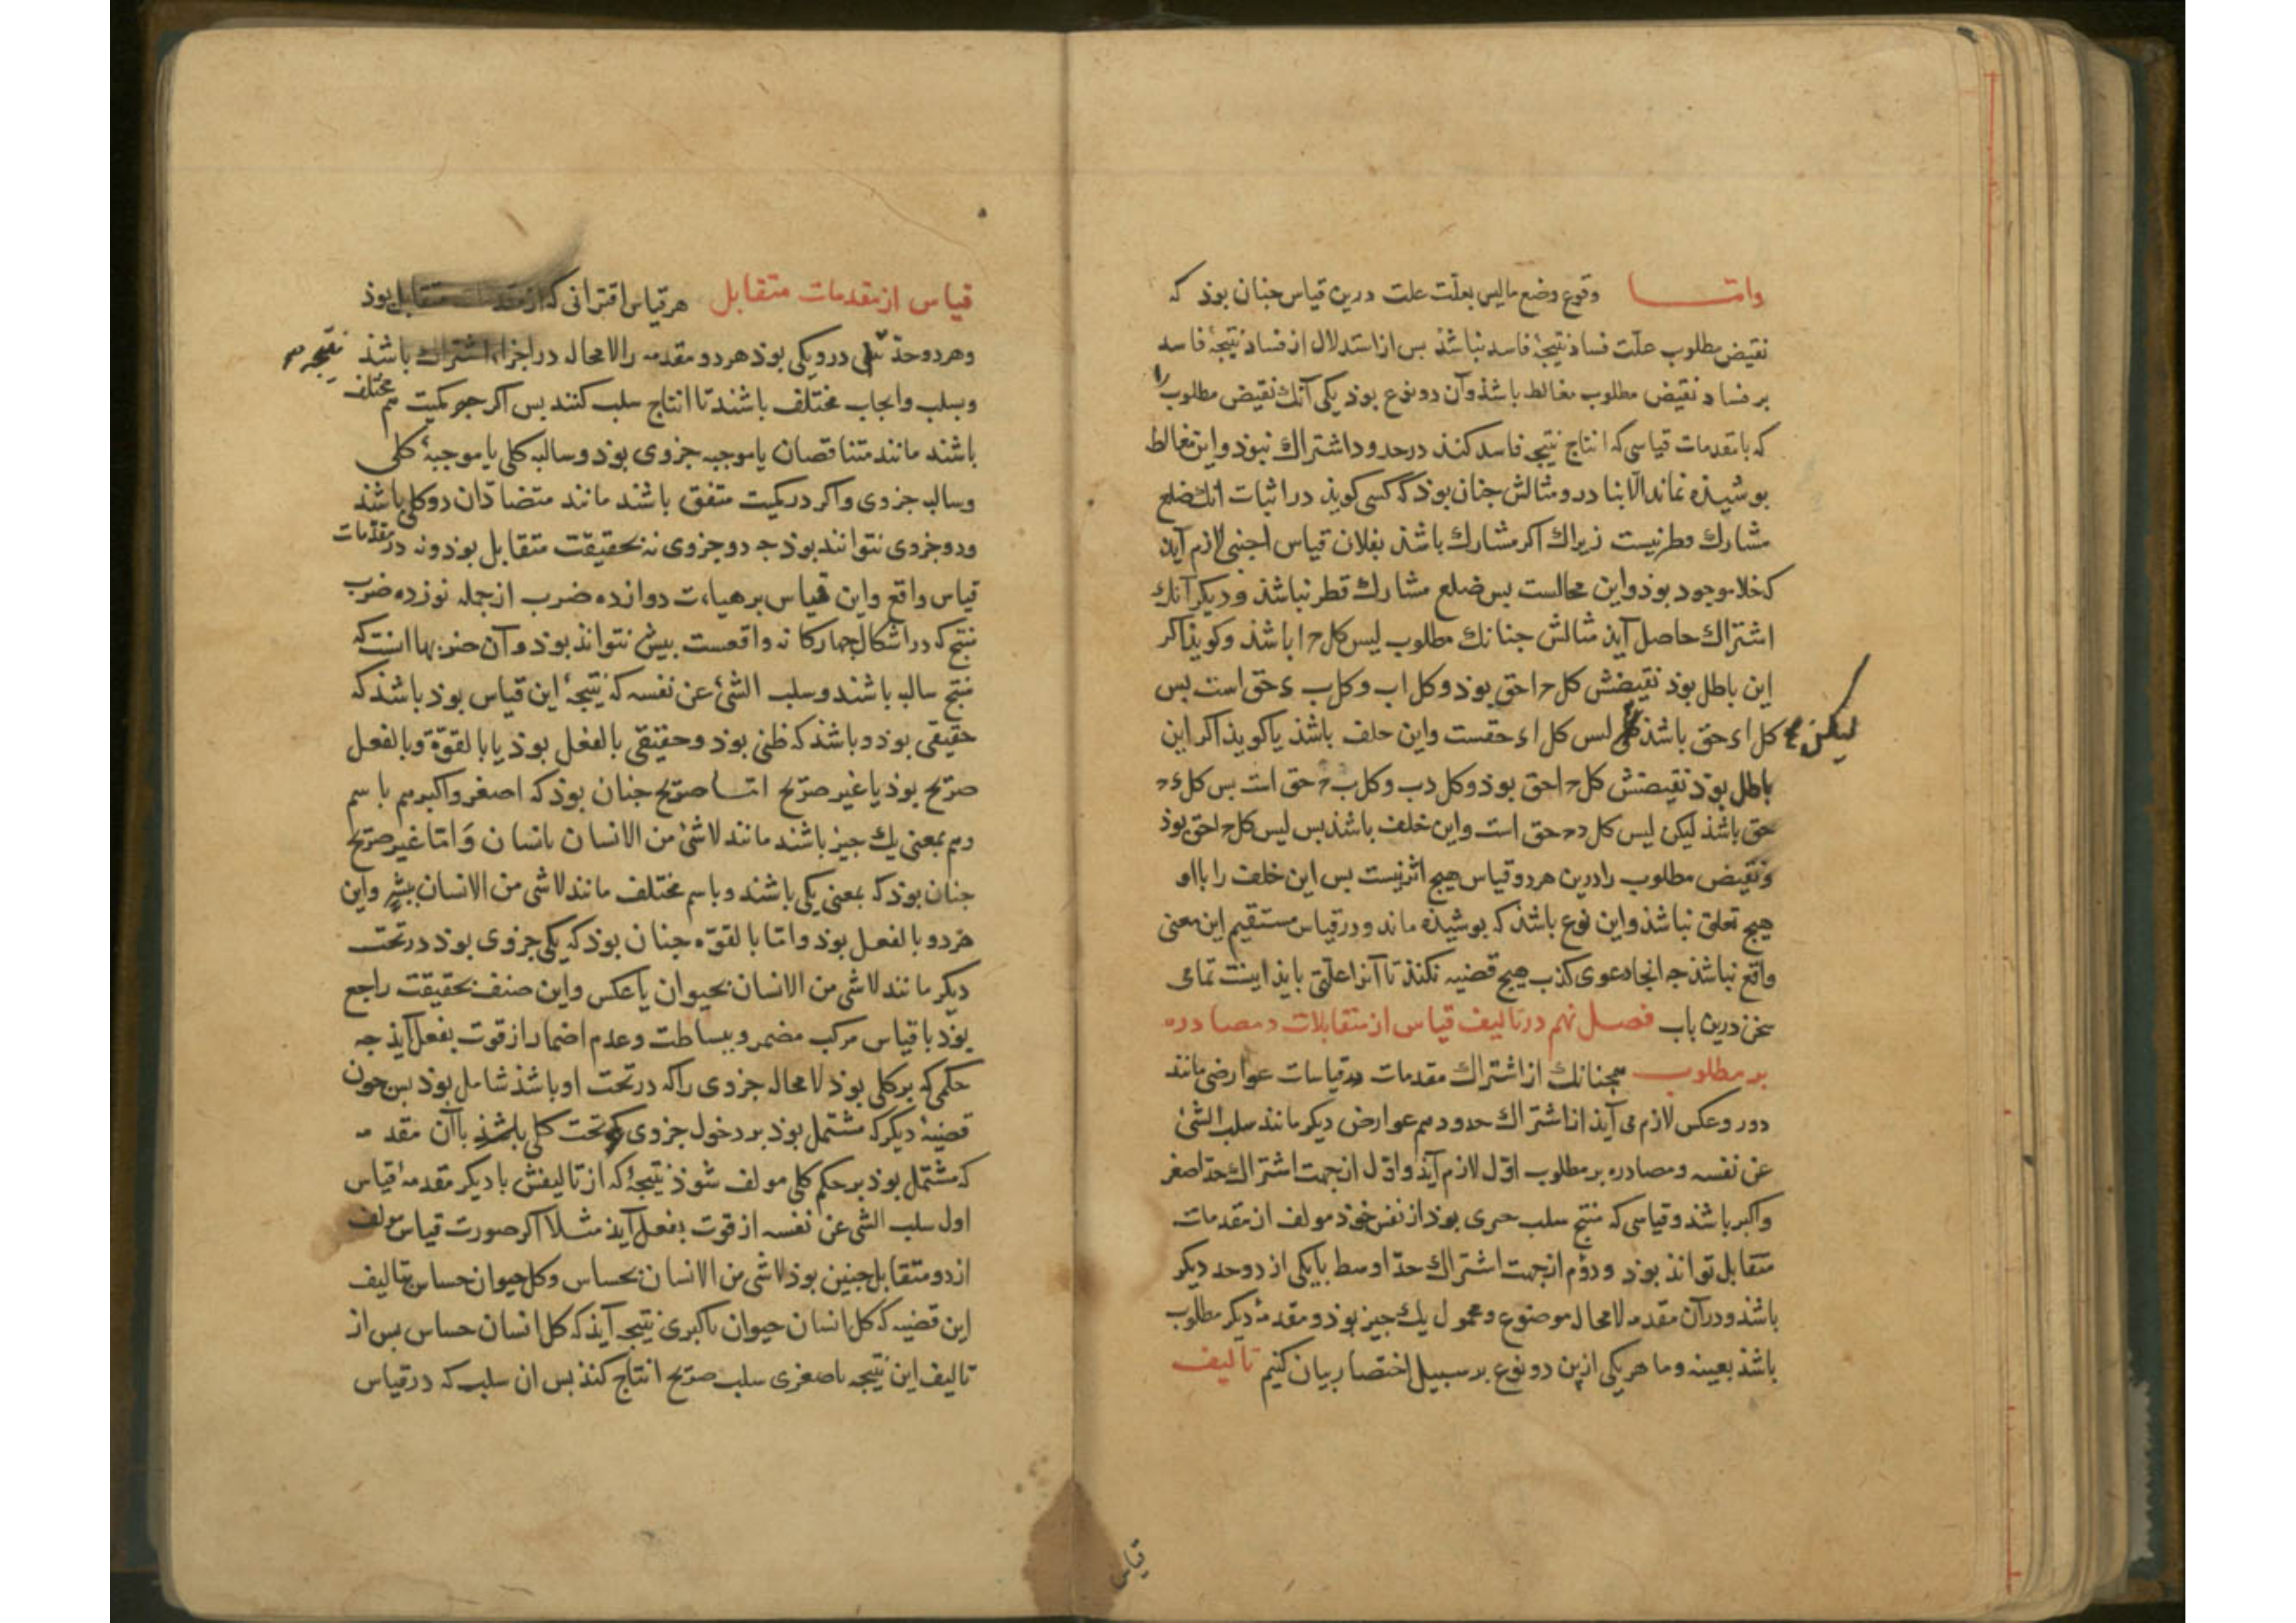 واما وقوع وضع ماليس بعلّت علت درين قياس جنان بوذ كه
نقيض مطلوب علّت فساذ نتيجۀ فاسد نباشذ بس از استدلال از فساذ نتيجۀ فاسد
بر فساد نقيض مطلوب مغالط باشذ وآن دو نوع بوذ يكى آنك نقيض مطلوب را
كه با مقدمات قياسى كه انتاج نتيجۀ فاسد كنذ در حدود اشتراك نبوذ واين مغالط
بوشيذه نماند الّا بنادر ومثالش جنان بوذ كه كسى كويذ در اثبات انك ضلع
مشارك قطر نيست زيراك اكر مشارك باشذ بفلان قياس اجنبى لازم آيذ
كه خلا موجود بوذ واين محالست بس ضلع مشارك قطر نباشذ وديكر آنك
اشتراك حاصل آيذ مثالش جنانك مطلوب ليس كل ح ا باشذ وكويذ اكر
اين باطل بوذ نقيضش كل ح ا حق بوذ وكل ا ب وكل ب ء حق است بس
كل ا ء حق باشذ ليكن ليس كل ا ء حقست واين خلف باشذ يا كويذ اكر اين
باطل بوذ نقيضش كل ح ا حق بوذ وكل د ب وكل ب ح حق است بس كل د ح
حق باشذ ليكن ليس كل د ح حق است واين خلف باشذ بس ليس كل ح ا حق بوذ
ونقيض مطلوب را درين هر دو قياس هيج اثر نيست بس اين خلف را با او
هيج تعلق نباشذ واين نوع باشذ كه بوشيذه ماند ودر قياس مستقيم اين معنى
واقع نباشذ جه انجا دعوى كذب هيج قضيه نكنذ تا آنرا علّتى بايذ اينست تمامى
سخن درين باب فصل نهم در تاليف قياس از متقابلات ومصادره
بر مطلوب همجنانك از اشتراك مقدمات در قياسات عوارضى مانند
دور وعكس لازم مى آيذ از اشتراك حدود هم عوارض ديكر مانند سلب الشئ
عن نفسه ومصادره بر مطلوب اوّل لازم آيذ واوّل از جهت اشتراك حدّ اصغر
واكبر باشذ وقياسى كه منتج سلب جيزى بوذ از نفس خوذ مولف از مقدمات
متقابل تواند بوذ ودوّم از جهت اشتراك حدّ اوسط با يكى از دو حد ديكر
باشذ ودر آن مقدمه لا محال موضوع ومحمول يك جيز بوذ ومقدمۀ ديكر مطلوب
باشذ بعينه وما هر يكى ازين دو نوع بر سبيل اختصار بيان كنيم تاليف
قياس
قياس از مقدمات متقابل هر قياس اقترانى كه از مقدمات متقابل بوذ
وهر دو حدّ نتيجه درو يكى بوذ هر دو مقدمه را لا محال در اجزاء اشتراك باشذ
وبسلب وايجاب مختلف باشند تا انتاج سلب كنند بس اكر در كميت هم مختلف
باشند مانند متناقضان يا موجبه جزوى بوذ وسالبه كلى يا موجبۀ كلى
وسالبه جزوى واكر در كميت متفق باشند مانند متضادّان دو كلى باشند
ودو جزوى نتوانند بوذ جه دو جزوى نه بحقيقت متقابل بوذ ونه در مقدّمات
قياس واقع واين قياس بر هيات دوازده ضرب از جمله نوزده ضرب
منتج كه در اشكال جهاركانه واقعست بيش نتواند بوذ وآن ضربها است كه
منتج سالبه باشند وسلب الشئ عن نفسه كه نتيجۀ اين قياس بوذ باشذ كه
حقيقى بوذ وباشذ كه ظنى بوذ وحقيقى بالفعل بوذ يا بالقوّة وبالفعل
صريح بوذ يا غير صريح امّا صريح جنان بوذ كه اصغر واكبر هم باسم
وهم بمعنى يك جيز باشند مانند لاشئ من الانسان بانسان وَامّا غير صريح
جنان بوذ كه بمعنى يكى باشند وباسم مختلف مانند لا شى من الانسان ببشرٍ واين
هر دو بالفعل بوذ وامّا بالقوّه جنان بوذ كه يكى جزوى بوذ در تحت
ديكر مانند لا شى من الانسان بحيوان يا عكس واين صنف بحقيقت راجع
بوذ با قياس مركب مضمر وببساطت وعدم اضمار از قوت بفعل آيذ جه
حكمى كه بر كلى بوذ لا محاله جزوى را كه در تحت او باشذ شامل بوذ بس جون
قضيۀ ديكر كه مشتمل بوذ بر دخول جزوى در تحت كلى باشذ باآن مقدمه
كه مشتمل بوذ بر حكم كلى مولف شوذ نتيجۀ كه از تاليفش با ديكر مقدمۀ قياس
اول سلب الشى عن نفسه از قوت بفعل آيذ مثلا اكر صورت قياس مولف
از دو متقابل جنين بوذ لا شى من الانسان بحساس وكل حيوان حساس بتاليف
اين قضيه كه كل انسان حيوان باكبرى نتيجه آيذ كه كل انسان حساس بس از
تاليف اين نتيجه باصغرى سلب صريح انتاج كنذ بس ان سلب كه در قياس